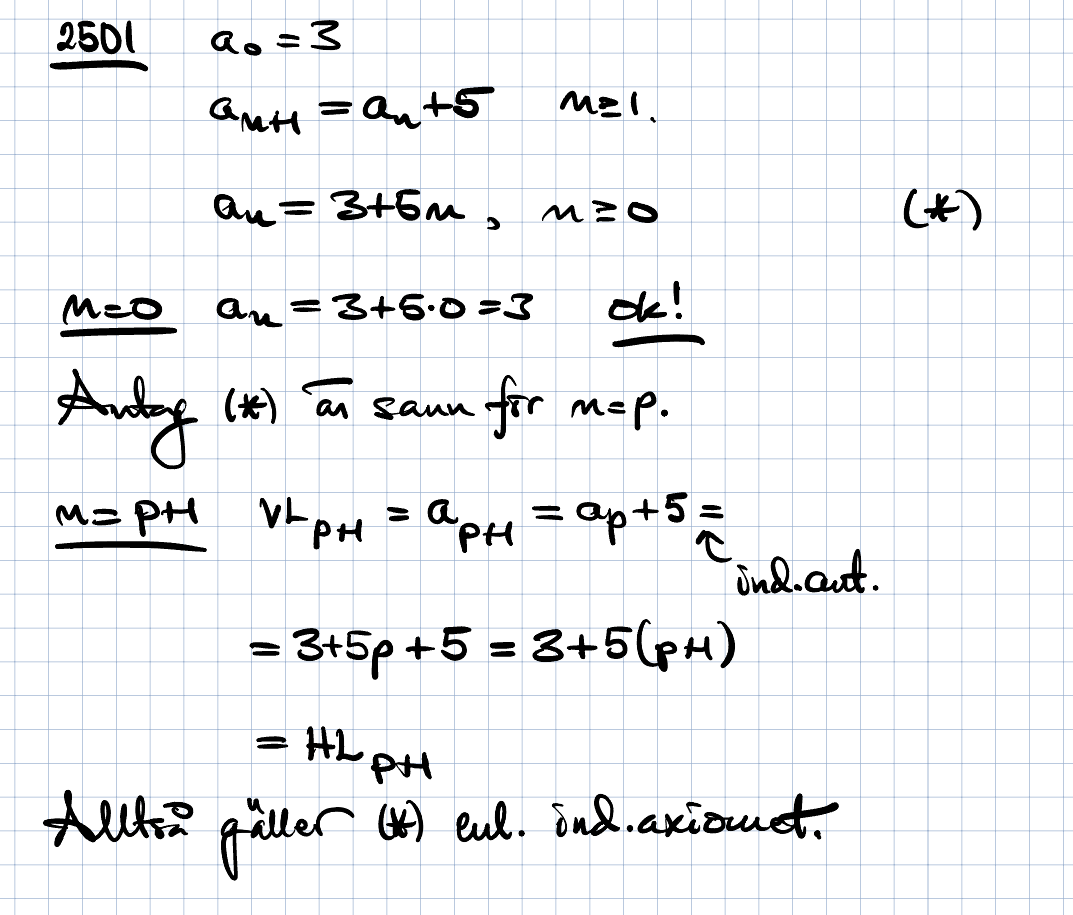 2501 a₀ = 3
aₙ₊₁ = aₙ+5 n≥1.
aₙ = 3+5n, n≥0 (*)
n=0 aₙ = 3+5·0 = 3 ok!
Antag (*) är sann för n=p.
n=p+1 VLₚ₊₁ = aₚ₊₁ = aₚ+5 =
ind.ant.
= 3+5p+5 = 3+5(p+1)
= HLₚ₊₁
Alltså gäller (*) enl. ind.axiomet.